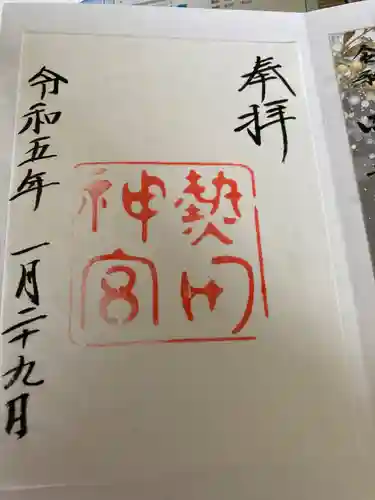 奉拝
熱田
神宮
令和五年 一月二十九日